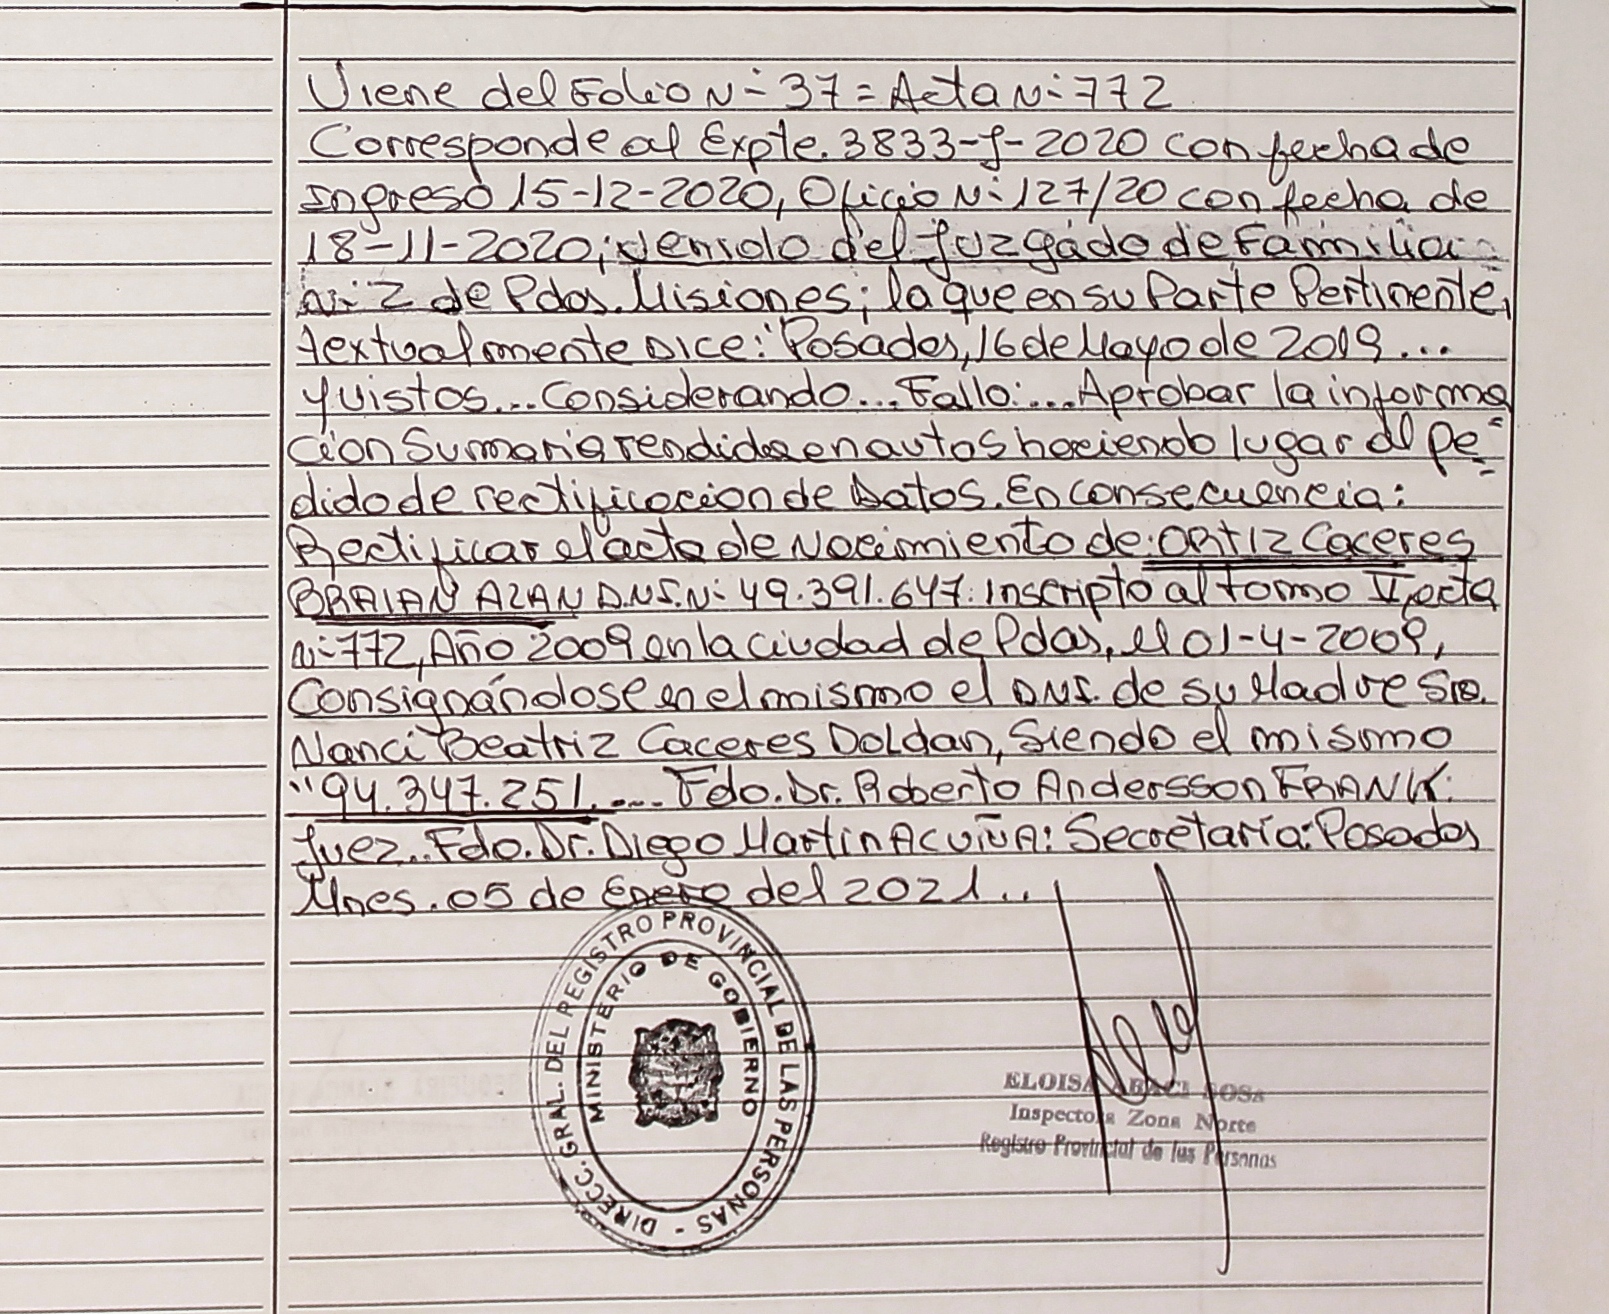 Viene del Folio N= 37 = Acta N= 772
Corresponde al Expte. 3833-J-2020 con fecha de
Ingreso 15-12-2020, Oficio N= 127/20 con fecha de
18-11-2020; venido del Juzgado de Familia
N= 2 de Pdas. Misiones; la que en su Parte Pertinente,
textualmente Dice: "Posadas, 16 de Mayo de 2019...
y vistos... Considerando... Fallo:... Aprobar la informa
ción Sumaria rendida en autos haciendo lugar al pe=
dido de rectificación de Datos. En consecuencia:
Rectificar el acta de Nacimiento de: ORTIZ Caceres
BRAIAN AZAN D.N.I. N= 49.391.647. Inscripto al tomo V, acta
N= 772, Año 2009 en la ciudad de Pdas, el 01-4-2009,
Consignándose en el mismo el D.N.I. de su Madre Sra.
Nanci Beatriz Caceres Doldan, Siendo el mismo
"94.347.251.... Fdo. Dr. Roberto Andersson FRANK.
Juez.. Fdo. Dr. Diego Martin ACUÑA: Secretaría: Posadas
Mnes. 05 de Enero del 2021...
DIRECC. GRAL. DEL REGISTRO PROVINCIAL DE LAS PERSONAS -
MINISTERIO DE GOBIERNO
ELOISA ABACI SOSA
Inspectora Zona Norte
Registro Provincial de las Personas